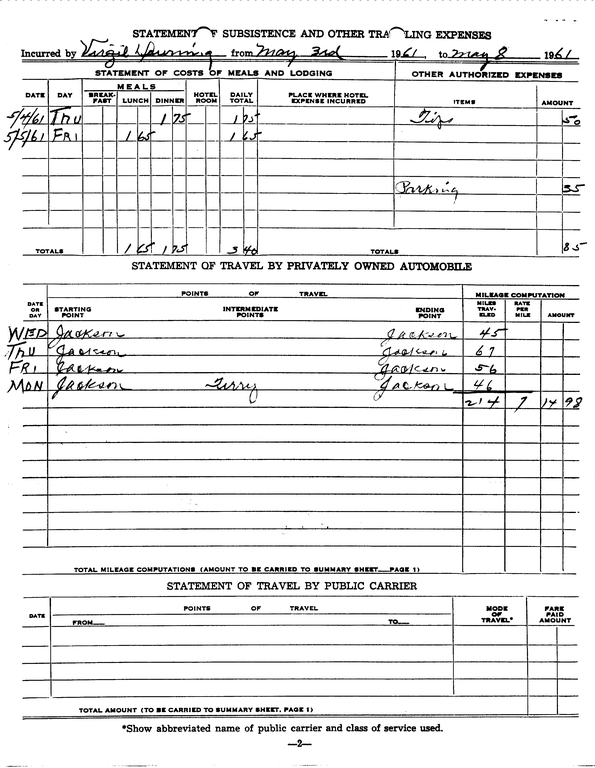 STATEMENT OF SUBSISTENCE AND OTHER TRA LING EXPENSES
Incurred by Virgil Downing from May 3rd 1961, to May 8 1961
STATEMENT OF COSTS OF MEALS AND LODGING OTHER AUTHORIZED EXPENSES
DATE DAY MEALS BREAK-FAST LUNCH DINNER HOTEL ROOM DAILY TOTAL PLACE WHERE HOTEL EXPENSE INCURRED ITEMS AMOUNT
5/4/61 Thu 1 75 1 75 Tips 50
5/5/61 FRI 1 65 1 65
Parking 35
TOTALS 1 65 1 75 3 40 TOTALS 85
STATEMENT OF TRAVEL BY PRIVATELY OWNED AUTOMOBILE
POINTS OF TRAVEL MILEAGE COMPUTATION
DATE OR DAY STARTING POINT INTERMEDIATE POINTS ENDING POINT MILES TRAV-ELED RATE PER MILE AMOUNT
WED Jackson Jackson 45
THU Jackson Jackson 67
FRI Jackson Jackson 56
MON Jackson Terry Jackson 46
214 7 14 98
TOTAL MILEAGE COMPUTATIONS (AMOUNT TO BE CARRIED TO SUMMARY SHEET—PAGE 1)
STATEMENT OF TRAVEL BY PUBLIC CARRIER
DATE POINTS OF TRAVEL MODE OF TRAVEL* FARE PAID AMOUNT
FROM— TO—
TOTAL AMOUNT (TO BE CARRIED TO SUMMARY SHEET, PAGE 1)
*Show abbreviated name of public carrier and class of service used.
—2—